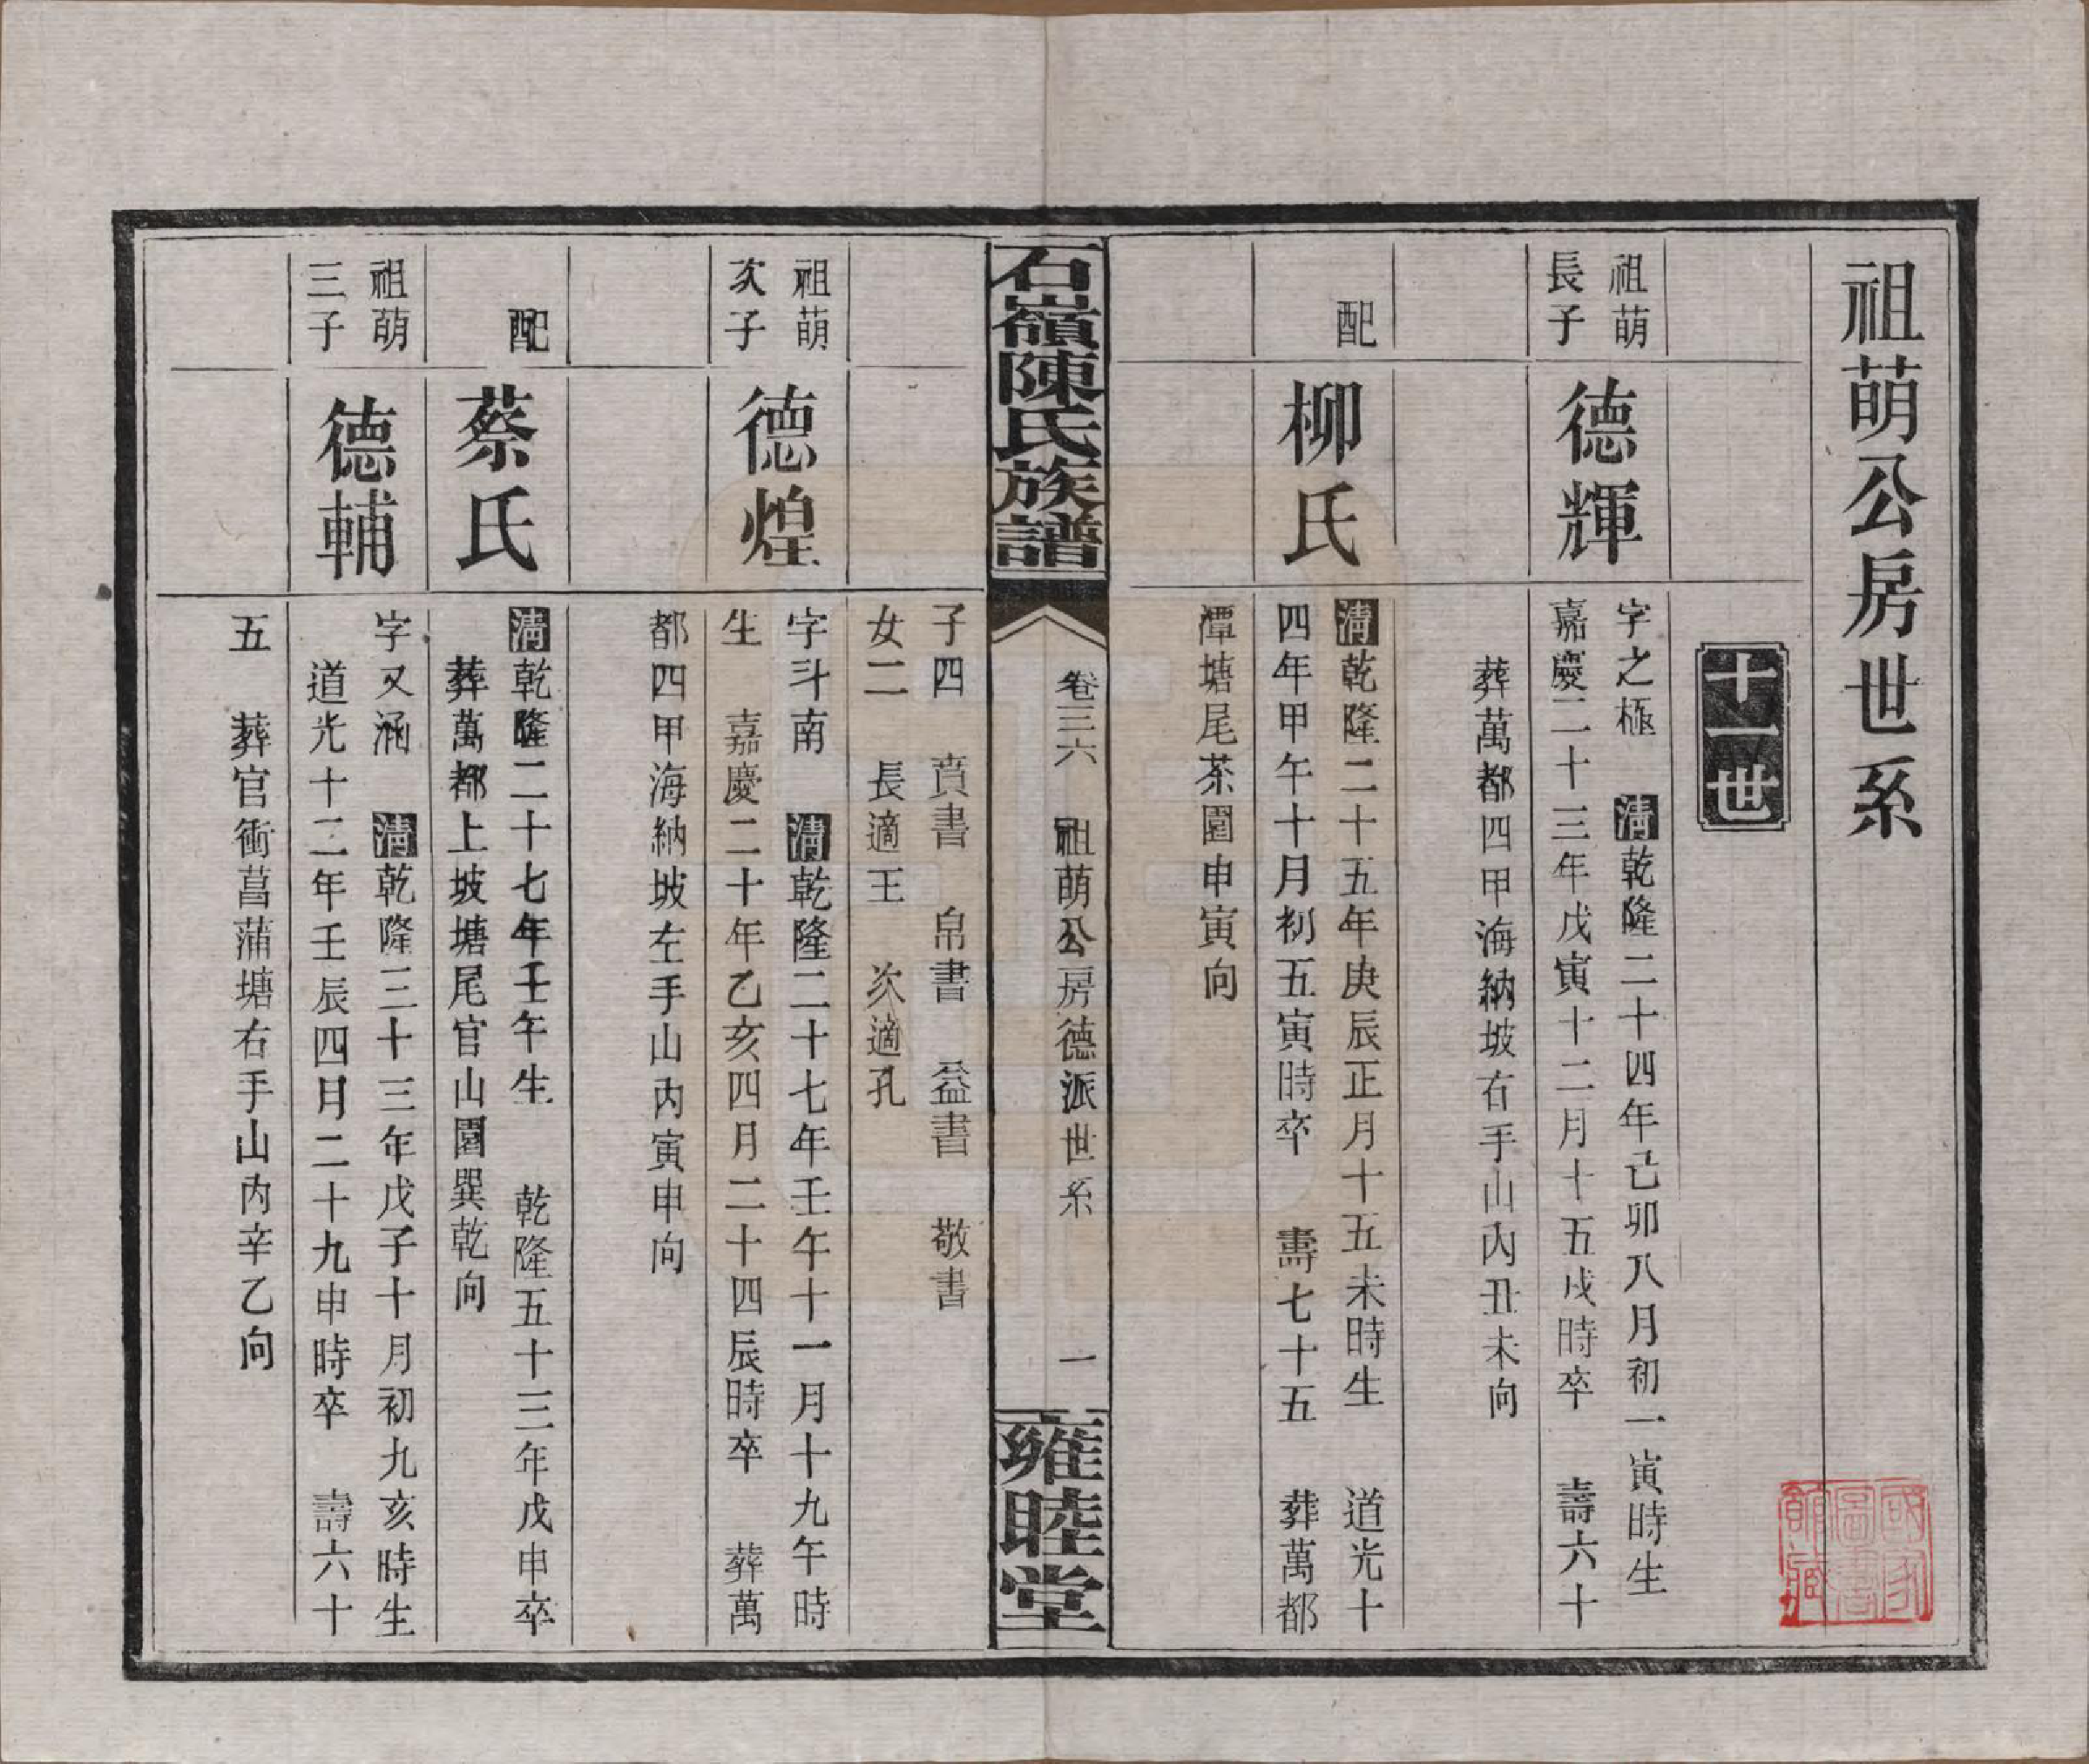 祖萌公房世系
十一世
祖萌
長子
德輝
字之極 清乾隆二十四年己卯八月初一寅時生
嘉慶二十三年戊寅十二月十五戌時卒 壽六十
葬萬都四甲海納坡右手山內丑未向
配
柳氏
清乾隆二十五年庚辰正月十五未時生 道光十
四年甲午十月初五寅時卒 壽七十五 葬萬都
潭塘尾茶園申寅向
石嶺陳氏族譜
卷三六 祖萌公房德派世系 一
雍睦堂
子四 賁書 帛書 益書 敬書
女二 長適王 次適孔
祖萌
次子
德煌
字斗南 清乾隆二十七年壬午十一月十九午時
生 嘉慶二十年乙亥四月二十四辰時卒 葬萬
都四甲海納坡左手山內寅申向
配
蔡氏
清乾隆二十七年壬午生 乾隆五十三年戊申卒
葬萬都上坡塘尾官山園巽乾向
祖萌
三子
德輔
字又涵 清乾隆三十三年戊子十月初九亥時生
道光十二年壬辰四月二十九申時卒 壽六十
五 葬官衝菖蒲塘右手山內辛乙向
國家
圖書
館藏